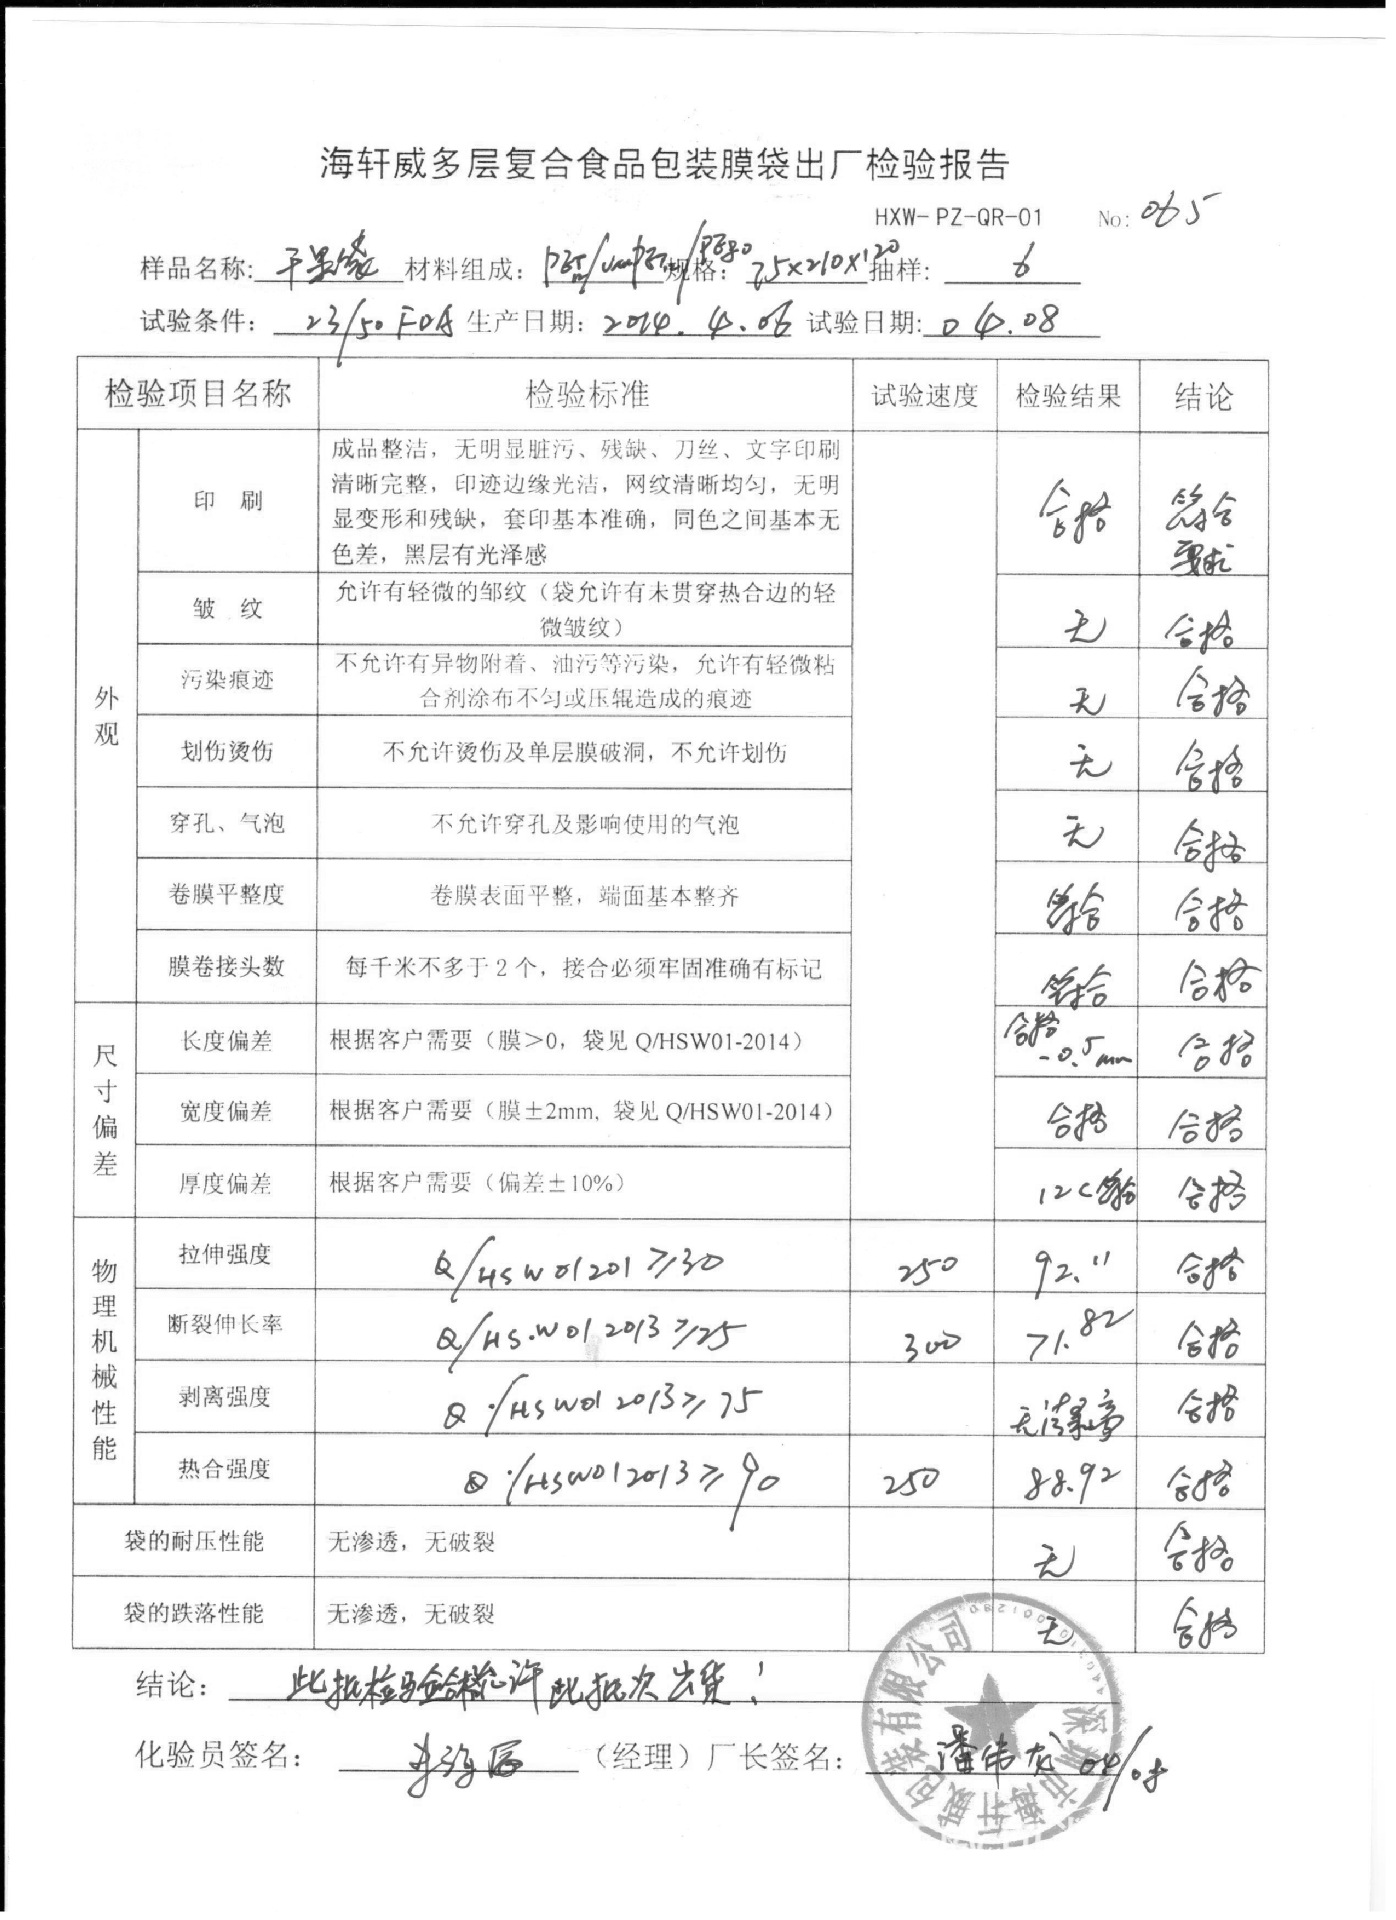 海轩威多层复合食品包装膜袋出厂检验报告
HXW-PZ-QR-01 No: 065
样品名称: 干果袋 材料组成: 规格: 75×210×120 抽样: 6
试验条件: 23/50 生产日期: 2014.4.06 试验日期: 04.08
检验项目名称 检验标准 试验速度 检验结果 结论
外观
印 刷
成品整洁，无明显脏污、残缺、刀丝、文字印刷
清晰完整，印迹边缘光洁，网纹清晰均匀，无明
显变形和残缺，套印基本准确，同色之间基本无
色差，黑层有光泽感
合格 符合
要求
皱 纹
允许有轻微的邹纹（袋允许有未贯穿热合边的轻
微皱纹）
无 合格
污染痕迹
不允许有异物附着、油污等污染，允许有轻微粘
合剂涂布不匀或压辊造成的痕迹
无 合格
划伤烫伤 不允许烫伤及单层膜破洞，不允许划伤 无 合格
穿孔、气泡 不允许穿孔及影响使用的气泡 无 合格
卷膜平整度 卷膜表面平整，端面基本整齐 符合 合格
膜卷接头数 每千米不多于2个，接合必须牢固准确有标记 符合 合格
尺寸偏差
长度偏差 根据客户需要（膜>0，袋见 Q/HSW01-2014） 合格 -0.5mm 合格
宽度偏差 根据客户需要（膜±2mm, 袋见 Q/HSW01-2014） 合格 合格
厚度偏差 根据客户需要（偏差±10%） 12C 符合 合格
物理机械性能
拉伸强度 Q/HSW01201 ≥30 250 92.11 合格
断裂伸长率 Q/HS.W01 2013 ≥25 300 71.82 合格
剥离强度 Q/HSW01 2013 ≥75 合格
热合强度 Q/HSW01 2013 ≥90 250 88.92 合格
袋的耐压性能 无渗透，无破裂 无 合格
袋的跌落性能 无渗透，无破裂 无 合格
结论: 此批检验合格允许此批次出货！
化验员签名: （经理）厂长签名: 潘伟龙 04/08
深圳市海轩威包装有限公司